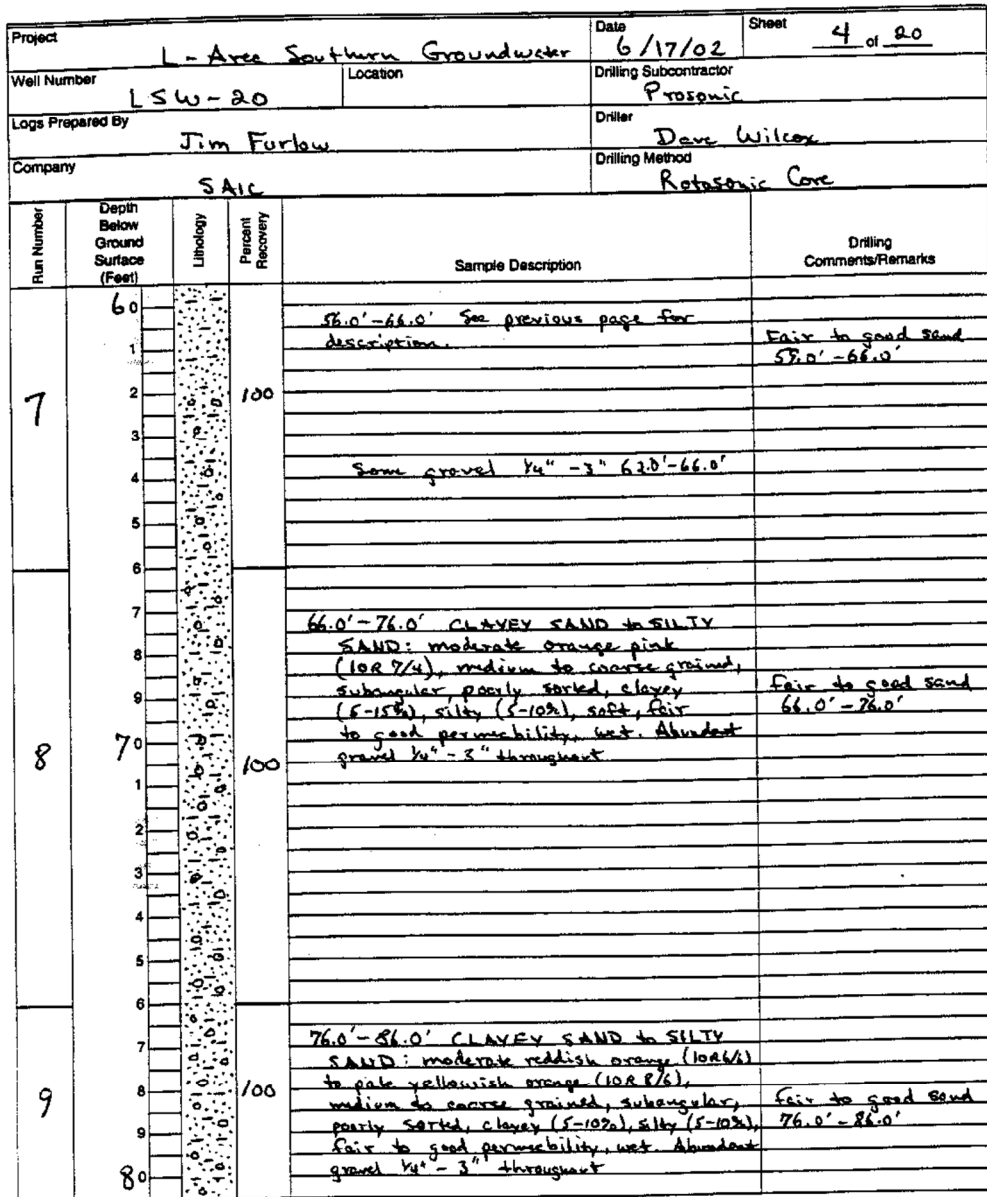 Project
L-Area Southern Groundwater
Date
6/17/02
Sheet
4 of 20
Well Number
LSW-20
Location
Drilling Subcontractor
Prosonic
Logs Prepared By
Jim Furlow
Driller
Dave Wilcox
Company
SAIC
Drilling Method
Rotasonic Core
Run Number
Depth
Below
Ground
Surface
(Feet)
Lithology
Percent
Recovery
Sample Description
Drilling
Comments/Remarks
60
56.0'-66.0' See previous page for
description.
Fair to good sand
1
2
7
100
3
Some gravel 1/4" - 3" 62.0'-66.0'
4
5
6
7
66.0'-76.0' CLAYEY SAND to SILTY
SAND: moderate orange pink
8
(10R 7/4), medium to coarse grained,
subangular, poorly sorted, clayey
Fair to good sand
9
(5-15%), silty (5-10%), soft, fair
66.0'-76.0'
to good permeability, wet. Abundant
70
gravel 1/4" - 3" throughout
8
100
1
2
3
4
5
6
76.0'-86.0' CLAYEY SAND to SILTY
7
SAND: moderate reddish orange (10R6/6)
to pale yellowish orange (10R 8/6),
8
9
100
medium to coarse grained, subangular,
Fair to good sand
poorly sorted, clayey (5-10%), silty (5-10%),
76.0'-86.0'
9
fair to good permeability, wet. Abundant
gravel 1/4" - 3" throughout
80